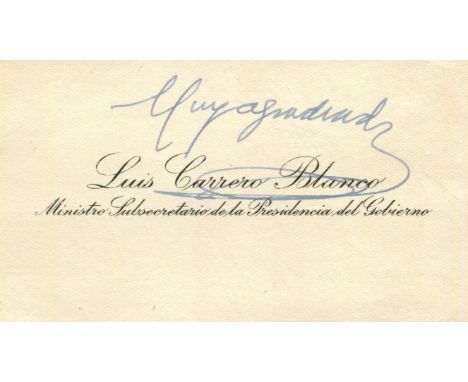 Muy agradecido
Luis Carrero Blanco
Ministro Subsecretario de la Presidencia del Gobierno